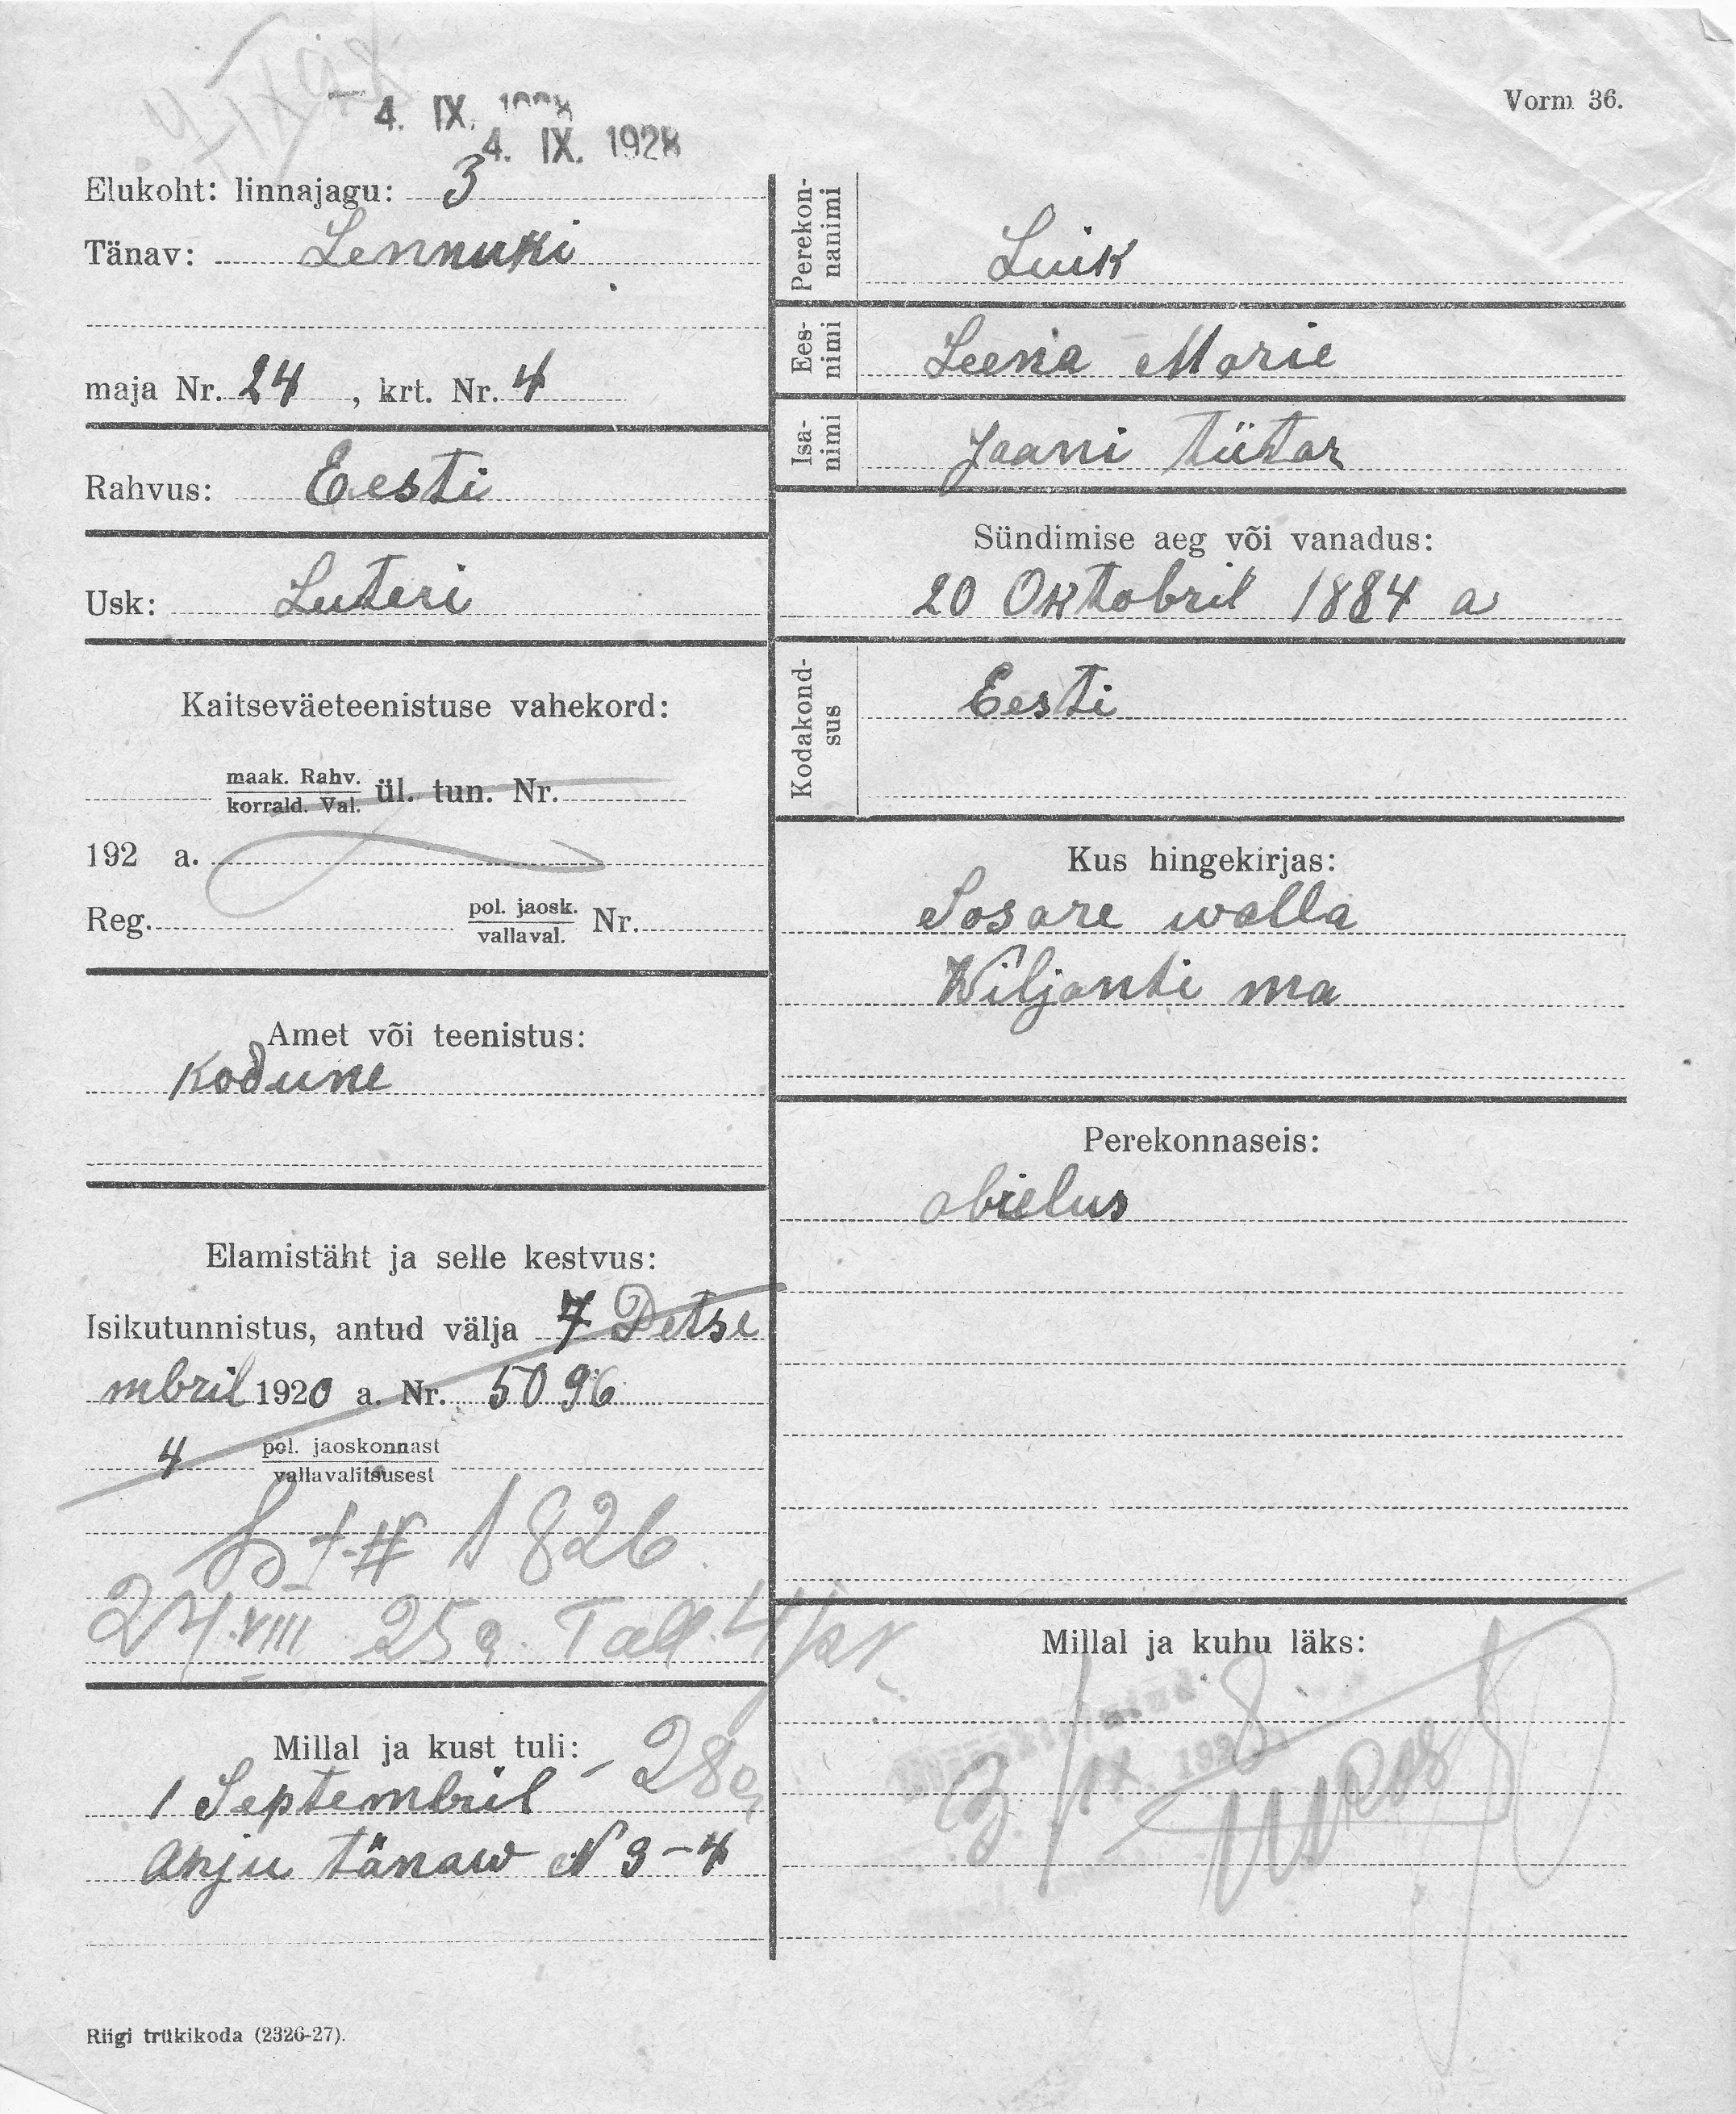 Vorm 36.
4. IX.
4. IX. 1928
Elukoht: linnajagu: 3
Tänav: Lennuki
maja Nr. 24, krt. Nr. 4
Rahvus: Eesti
Usk: Luteri
Kaitseväeteenistuse vahekord:
maak. Rahv.
korrald. Val. ül. tun. Nr.
192 a.
Reg. pol. jaosk.
vallaval. Nr.
Amet või teenistus:
Kodune
Elamistäht ja selle kestvus:
Isikutunnistus, antud välja 7 Detse
mbril 1920 a. Nr. 5096
4 pol. jaoskonnast
vallavalitsusest
1826
VIII 25 a. Tall. 4
Millal ja kust tuli:
1 Septembril - 28 a
Anju tänaw N 3-4
Riigi trükikoda (2326-27).
Perekon-
nanimi
Luik
Ees-
nimi
Leena Marie
Isa-
nimi
Jaani tütar
Sündimise aeg või vanadus:
20 Oktobril 1884 a
Kodakond-
sus
Eesti
Kus hingekirjas:
Sosare walla
Wiljanti ma
Perekonnaseis:
abielus
Millal ja kuhu läks: